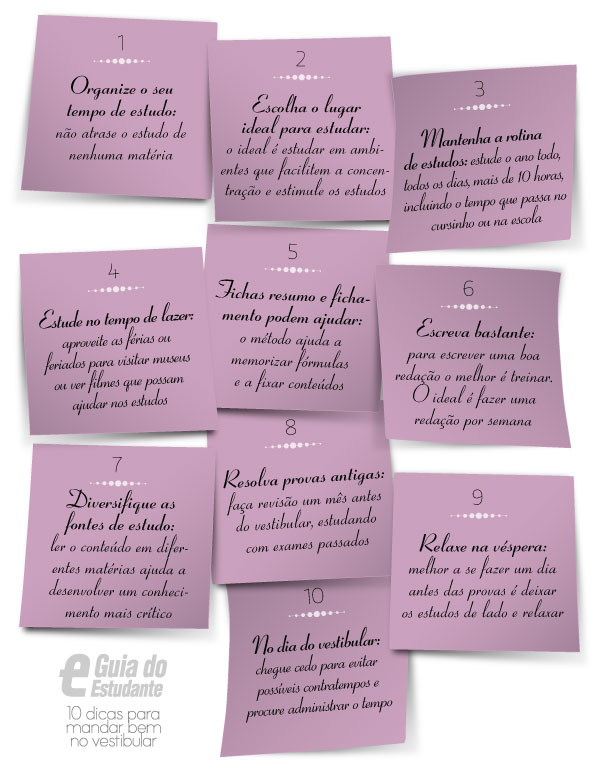 1
Organize o seu
tempo de estudo:
não atrase o estudo de
nenhuma matéria
2
Escolha o lugar
ideal para estudar:
o ideal é estudar em ambi-
entes que facilitem a concen-
tração e estimule os estudos
3
Mantenha a rotina
de estudos: estude o ano todo,
todos os dias, mais de 10 horas,
incluindo o tempo que passa no
cursinho ou na escola
4
Estude no tempo de lazer:
aproveite as férias ou
feriados para visitar museus
ou ver filmes que possam
ajudar nos estudos
5
Fichas resumo e ficha-
mento podem ajudar:
o método ajuda a
memorizar fórmulas
e a fixar conteúdos
6
Escreva bastante:
para escrever uma boa
redação o melhor é treinar.
O ideal é fazer uma
redação por semana
7
Diversifique as
fontes de estudo:
ler o conteúdo em difer-
entes matérias ajuda a
desenvolver um conheci-
mento mais crítico
8
Resolva provas antigas:
faça revisão um mês antes
do vestibular, estudando
com exames passados
9
Relaxe na véspera:
melhor a se fazer um dia
antes das provas é deixar
os estudos de lado e relaxar
10
No dia do vestibular:
chegue cedo para evitar
possíveis contratempos e
procure administrar o tempo
e Guia do
Estudante
10 dicas para
mandar bem
no vestibular